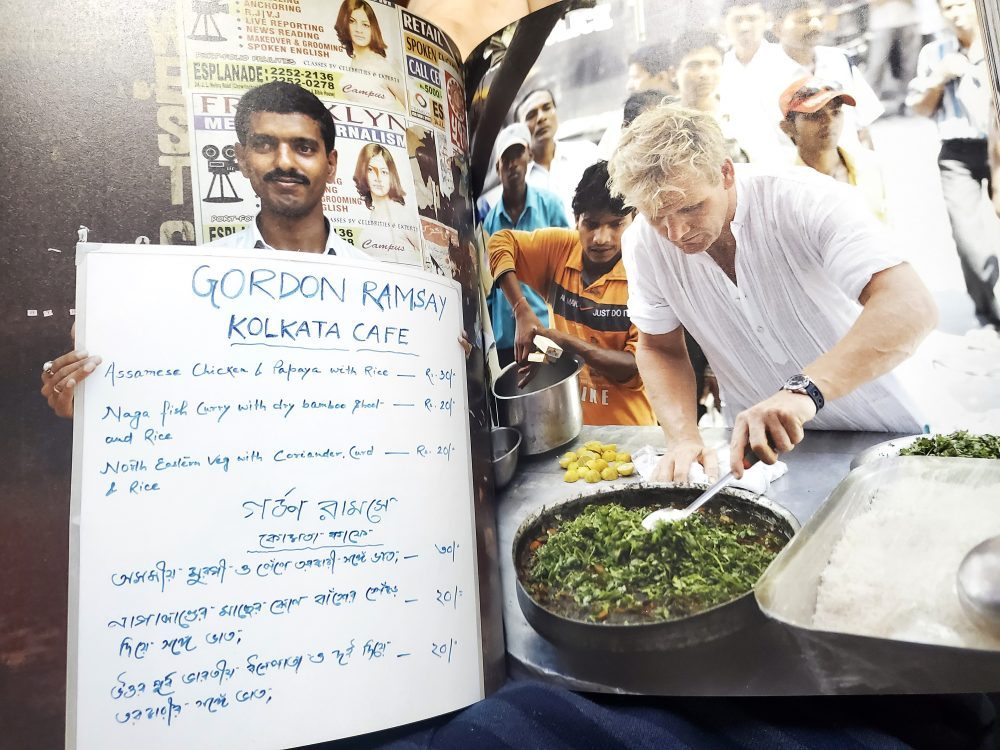 ANCHORING
• R.J|V.J
• LIVE REPORTING
• NEWS READING
• MAKEOVER & GROOMING
• SPOKEN ENGLISH
CLASSES BY CELEBRITIES & EXPERTS
ESPLANADE: 2252-2136
2252-0278
Campus
RETAIL
SPOKEN
CALL CE
JOURNALISM
GROOMING
ENGLISH
BY CELEBRITIES & EXPERTS
Campus
GORDON RAMSAY
KOLKATA CAFE
Assamese Chicken & Papaya with Rice — Rs. 30/-
Naga fish Curry with dry bamboo shoot — Rs. 20/-
and Rice
North Eastern Veg with Coriander, Curd — Rs. 20/-
& Rice
গর্ডন রামসে
অসমীয় মুরগী ও পেঁপে তরকারী সঙ্গে ভাত; — ৩০/-
নাগাল্যাণ্ডের মাছের ঝোল বাঁশের কোঁড় — ২০/-
দিয়ে সঙ্গে ভাত;
উত্তর পূর্ব ভারতীয় ধনেপাতা ও দই দিয়ে — ২০/-
তরকারীর সঙ্গে ভাত;
JUST DO IT